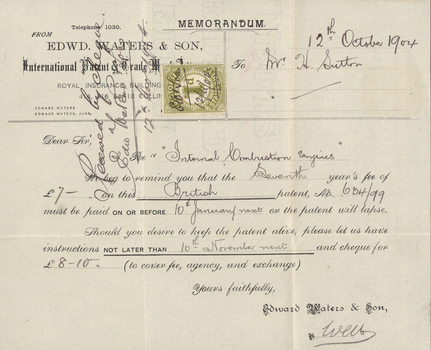 Telephone 1030.
MEMORANDUM.
FROM
EDWD. WATERS & SON,
International Patent & Trade
ROYAL INSURANCE BUILDING
COLLIN
EDWARD WATERS
EDWARD WATERS, JUNR.
12th October 1904
To Mr. H. Sutton
Received by cheque
Edwd Waters & Son
Dear Sir,
Re "Internal Combustion Engines"
I beg to remind you that the Seventh year's fee of
£7-- on this British patent, No. 634/99
must be paid ON OR BEFORE 10th January next or the patent will lapse.
Should you desire to keep the patent alive, please let us have
instructions NOT LATER THAN 10th November next and cheque for
£8-10. (to cover fee, agency, and exchange)
Yours faithfully,
Edward Waters & Son,